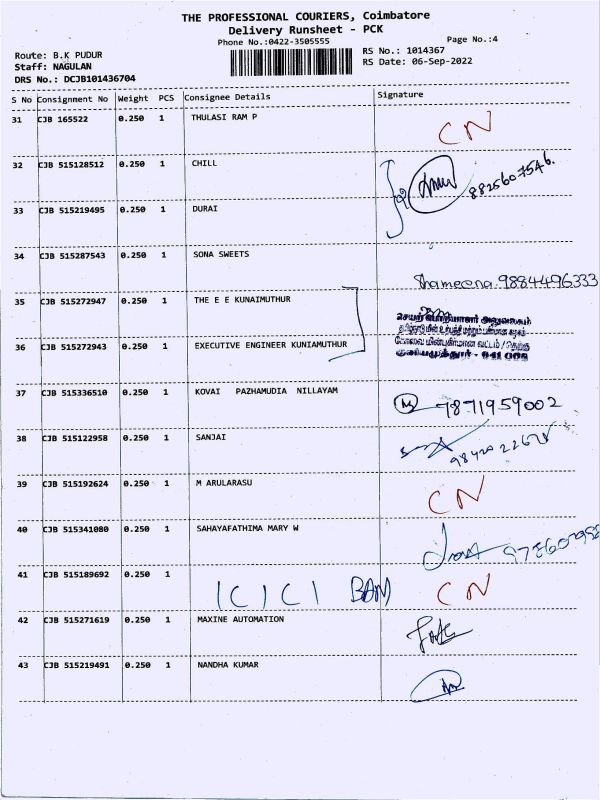 THE PROFESSIONAL COURIERS, Coimbatore
Delivery Runsheet - PCK
Phone No.:0422-3505555
Page No.:4
Route: B.K PUDUR
RS No.: 1014367
Staff: NAGULAN
RS Date: 06-Sep-2022
DRS No.: DCJB101436704
S No Consignment No Weight PCS Consignee Details Signature
31 CJB 165522 0.250 1 THULASI RAM P CN
32 CJB 515128512 0.250 1 CHILL 8825607546.
33 CJB 515219495 0.250 1 DURAI
34 CJB 515287543 0.250 1 SONA SWEETS Shameena. 9884496333
35 CJB 515272947 0.250 1 THE E E KUNAIMUTHUR
செயற் பொறியாளர் அலுவலகம்
தமிழ்நாடு மின் உற்பத்தி மற்றும் பகிர்மான கழகம்
36 CJB 515272943 0.250 1 EXECUTIVE ENGINEER KUNIAMUTHUR
கோவை மின்பகிர்மான வட்டம் / தெற்கு
குனியமுத்தூர் - 641 008
37 CJB 515336510 0.250 1 KOVAI PAZHAMUDIA NILLAYAM 7871959002
38 CJB 515122958 0.250 1 SANJAI
39 CJB 515192624 0.250 1 M ARULARASU CN
40 CJB 515341080 0.250 1 SAHAYAFATHIMA MARY W
41 CJB 515189692 0.250 1 ICICI BAN CN
42 CJB 515271619 0.250 1 MAXINE AUTOMATION
43 CJB 515219491 0.250 1 NANDHA KUMAR